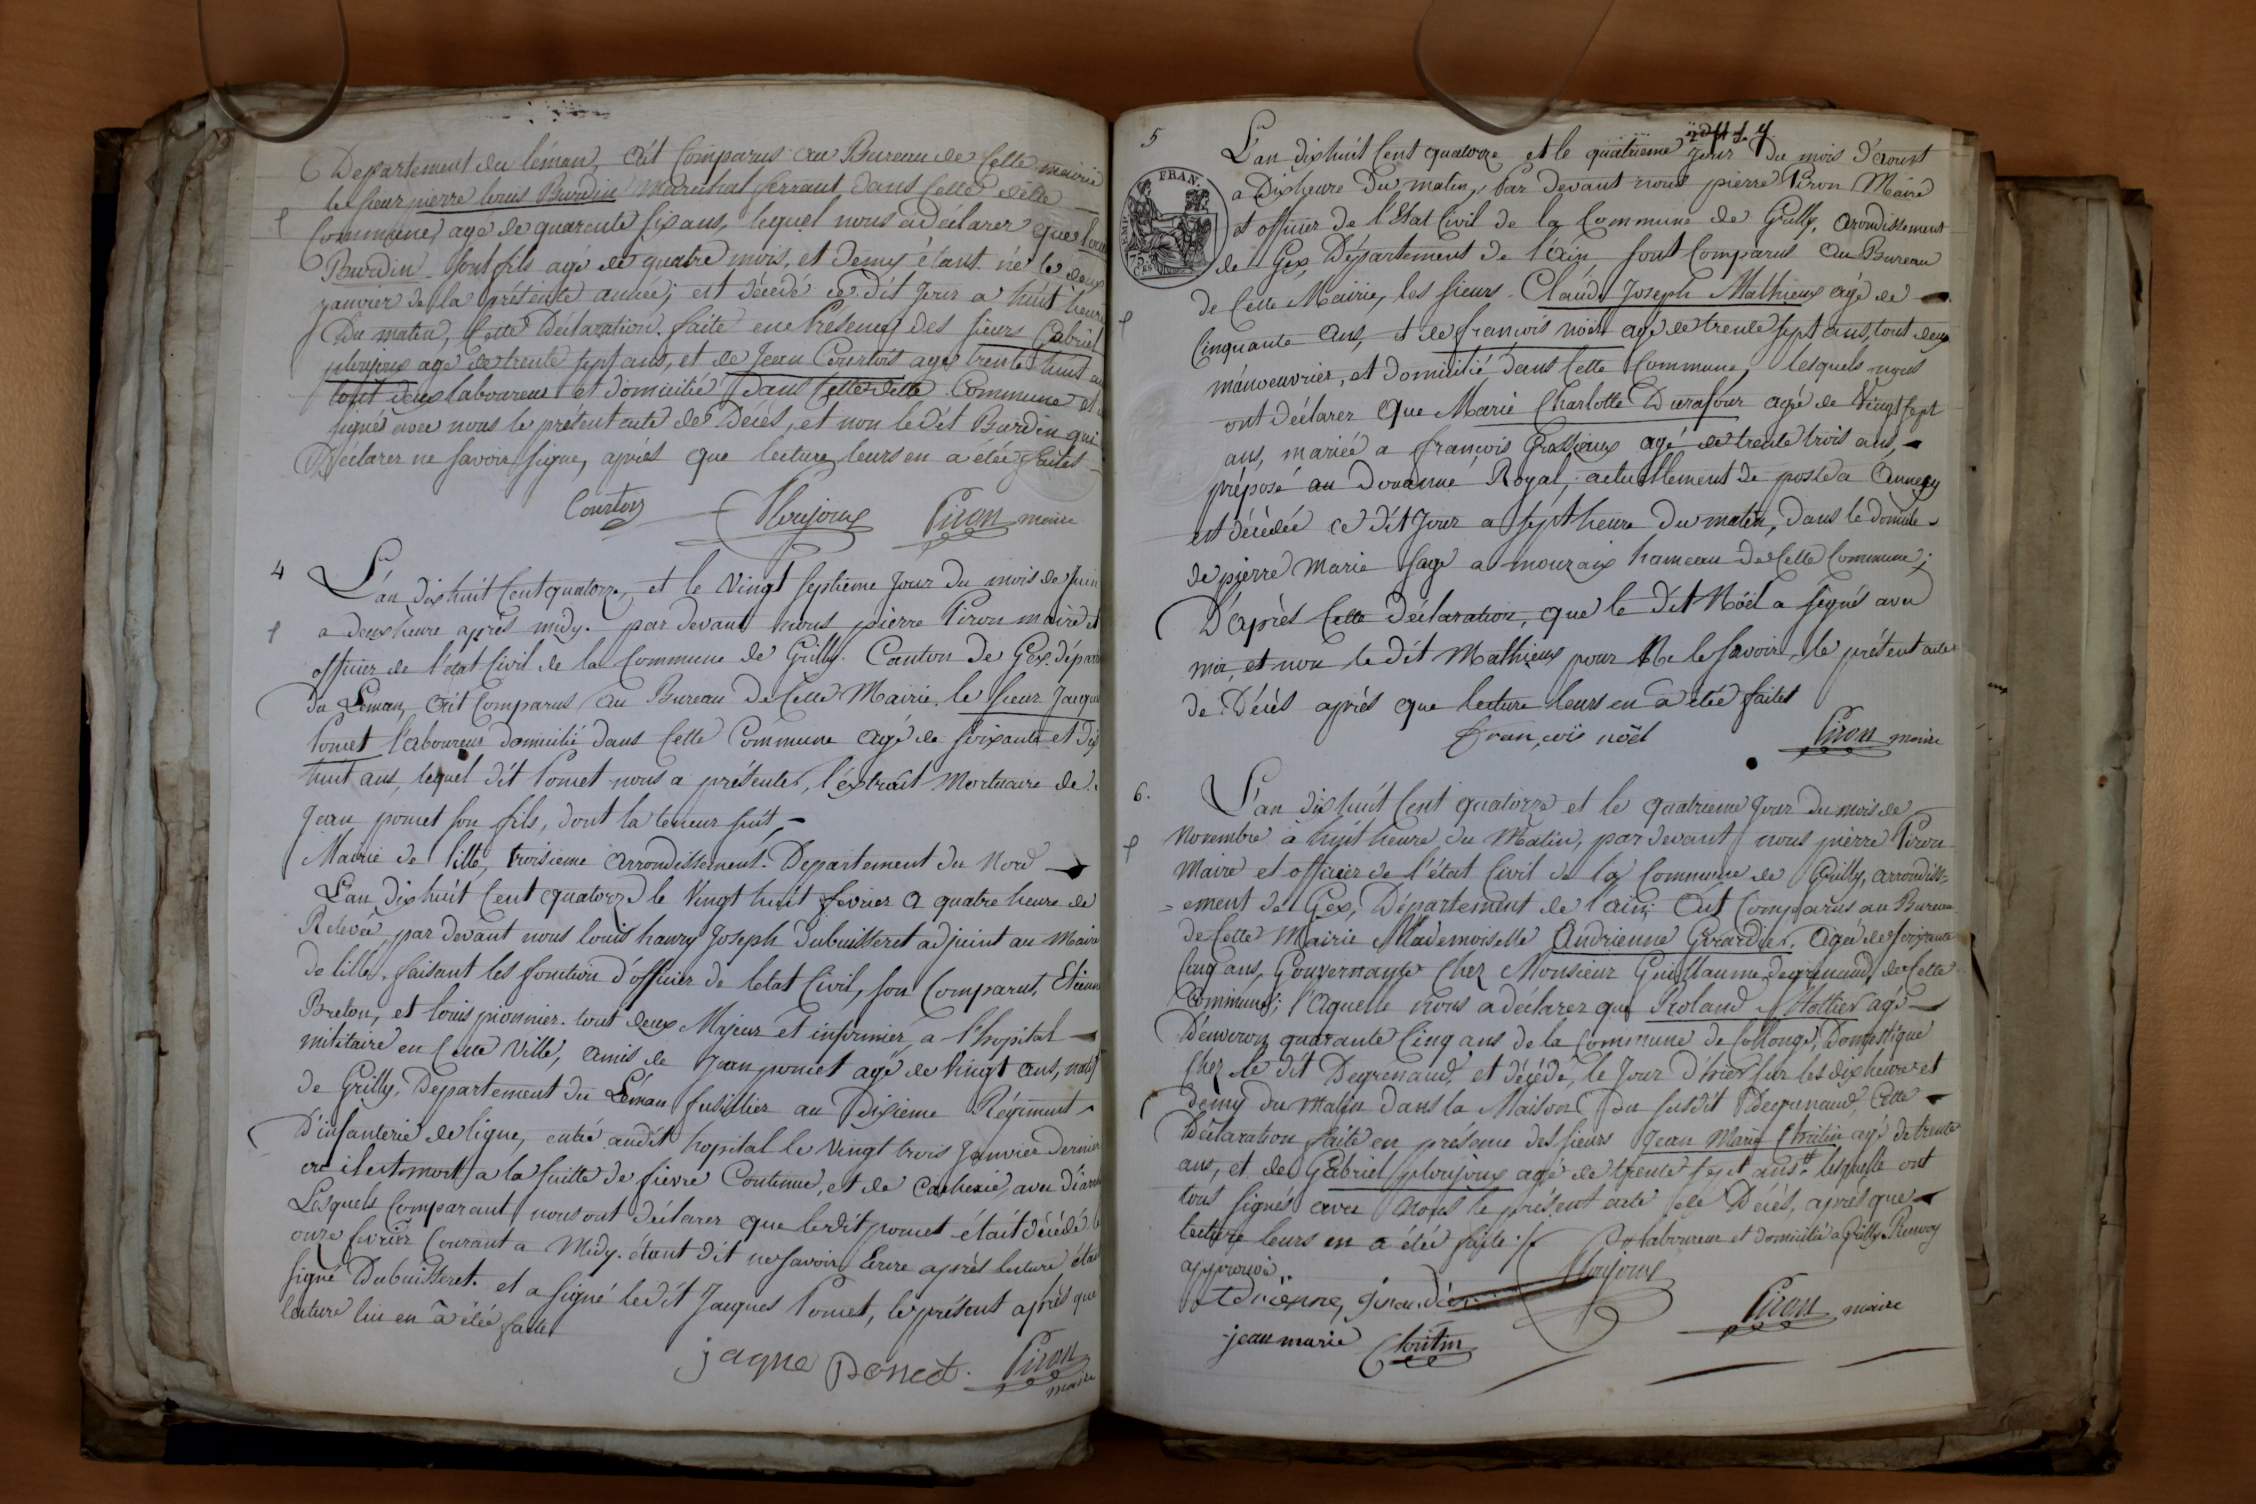 Departement du léman, Est Comparus au Bureau de Cette mairie
le sieur pierre louis Burdin Maréchal ferrant, dans Cette ditte
Commune, agé de quarente six ans, lequel nous a déclarer que
Burdin son fils agé de quatre mois, et demy étant né le deux
janvier de la présente année; est décédé ce dit Jour a huit heure
Du matin, Cette Déclaration faite en Présence des sieurs Gabriel
plovjoux agé de trente sept ans, et de Jean Courtois agé trente huit
tout deux laboureur et domicilié dans Cette ditte Commune
signés avec nous le présent acte de Décès, et non le dit Burdin qui
Déclarer ne savoir signe, après que lecture leurs en a étée faites
Courtois Plovjoux Piron maire
4
L'an dix huit Cent quatorze, et le Vingt septième Jour du mois de Juin
a deux heure après midy. par devant nous pierre Piron maire et
officier de l'état Civil de la Commune de Grilly. Canton de Gex. départ
du Léman, Est Comparus au Bureau de Cette Mairie. le sieur Jacque
Ponet l'aboureur domicilié dans Cette Commune agé de soixante et dix
huit ans, lequel dit Ponet nous a présenter, l'éxtrait Mortuaire de
Jean ponet son fils, dont la teneur suit
Mairie de lille, troisieme arrondissement. Departement du Nord
L'an dix huit Cent quatorze le Vingt huit fevrier a quatre heure de
Relevée, par devant nous louis haury Joseph Dubuisseret adjoint au Maire
de lille. faisant les fonction d'officier de letat Civil, son Comparut, Etienne
Breton, et louis pionnier. tout deux Majeur et infirmier a l'hopital
militaire en Cette Ville, amis de Jean ponet agé de Vingt ans, natif
de Grilly, Departement du Léman fusillier au Dixieme Régiment
D'infanterie de ligne, entré audit hopital le Vingt trois Janvier dernier
ou il est mort a la suitte de fievre Continue, et de Cachexie, avec diarrh
Lesquels Comparant nous ont déclarer que le dit ponet était décédé le
onze fevrier Courant a Midy. étant dit ne savoir Ecrire après lecture
signé Dubuisseret. et a signé le dit Jacques Ponet, le présent après que
lecture lui en a étée faite
jaque Ponet. Piron
maire
5
L'an dix huit Cent quatorze et le quatrieme Jour du mois d'aoust
a Dix heure Du matin, Par devant nous pierre Piron Maire
et officier de l'Etat Civil de la Commune de Grilly, arondissement
de Gex, Département de l'ain sont Comparus au Bureau
de Cette Mairie, les sieurs Claude Joseph Mathieux agé de
Cinquante ans, et de françois noël agé de trente sept ans, tout deux
manoeuvrier, et domicilié dans Cette Commune, lesquels nous
ont déclarer que Marie Charlotte Durafour agé de Vingt sept
ans, mariée a françois Grossieux agé de trente trois ans,
préposé au Douanne Royal, actuellement de poste a Annecy
est décédée ce dit Jour a sept heure Du matin, dans le domicile
de pierre Marie Sage a mouraix hameau de Cette Commune;
D'après Cette déclaration, que le dit Noël a signés avec
moi, et non le dit Mathieux pour Ne le savoir, le présent acte
de Décès après que lecture leurs en a étée faites
françois nöel Piron maire
FRAN.
75
6.
L'an dix huit Cent quatorze et le quatrieme Jour Du mois de
Novembre à huit heure du Matin, par devant nous pierre Piron
Maire et officier de l'état Civil de la Commune de Grilly, arrondiss=
=ement de Gex, Département de l'ain; Est Comparus au Bureau
de Cette Mairie Mademoiselle Andrienne Girardier, agée de soixante
Cinq ans, Gouvernante Chez Monsieur Guillaume Degrenaud, de Cette
Commune; l'aquelle nous a déclarer que Roland Hottier agé
D'environ quarante Cinq ans de la Commune de Collonge, Domestique
Chez le dit Degrenaud, est décédé, le Jour D'hier sur les dix heure et
demy du Matin dans la Maison du susdit Degrenaud, Cette
Déclaration faite en présence des sieurs Jean Marie Choitin agé de trente
ans, et de Gabriel plovjoux agé de trente sept ans # lesquelle ont
tous signés avec Nous le présent acte de Décès, après que
lecture leurs en a étée faite # laboureur et domicilié a Grilly. Renvoy
approuvé
Adrienne, girardier Plovjoux Piron maire
jean marie Choitin